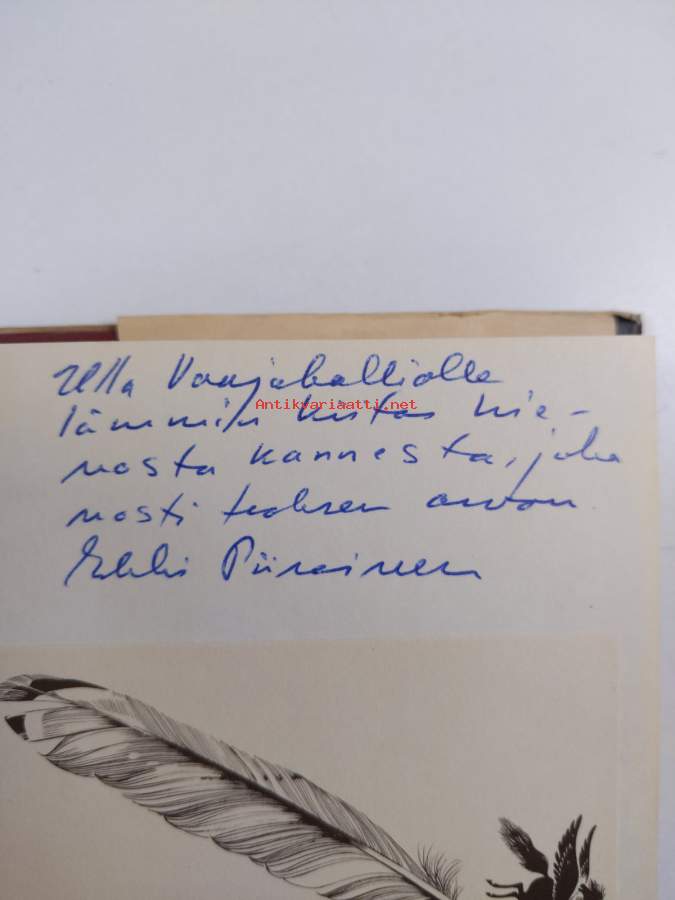 Ulla Vaajakalliolle
Antikvariaatti.net
lämmin kiitos hie-
nosta kannesta, joka
nosti teoksen arvon.
Erkki Piirainen